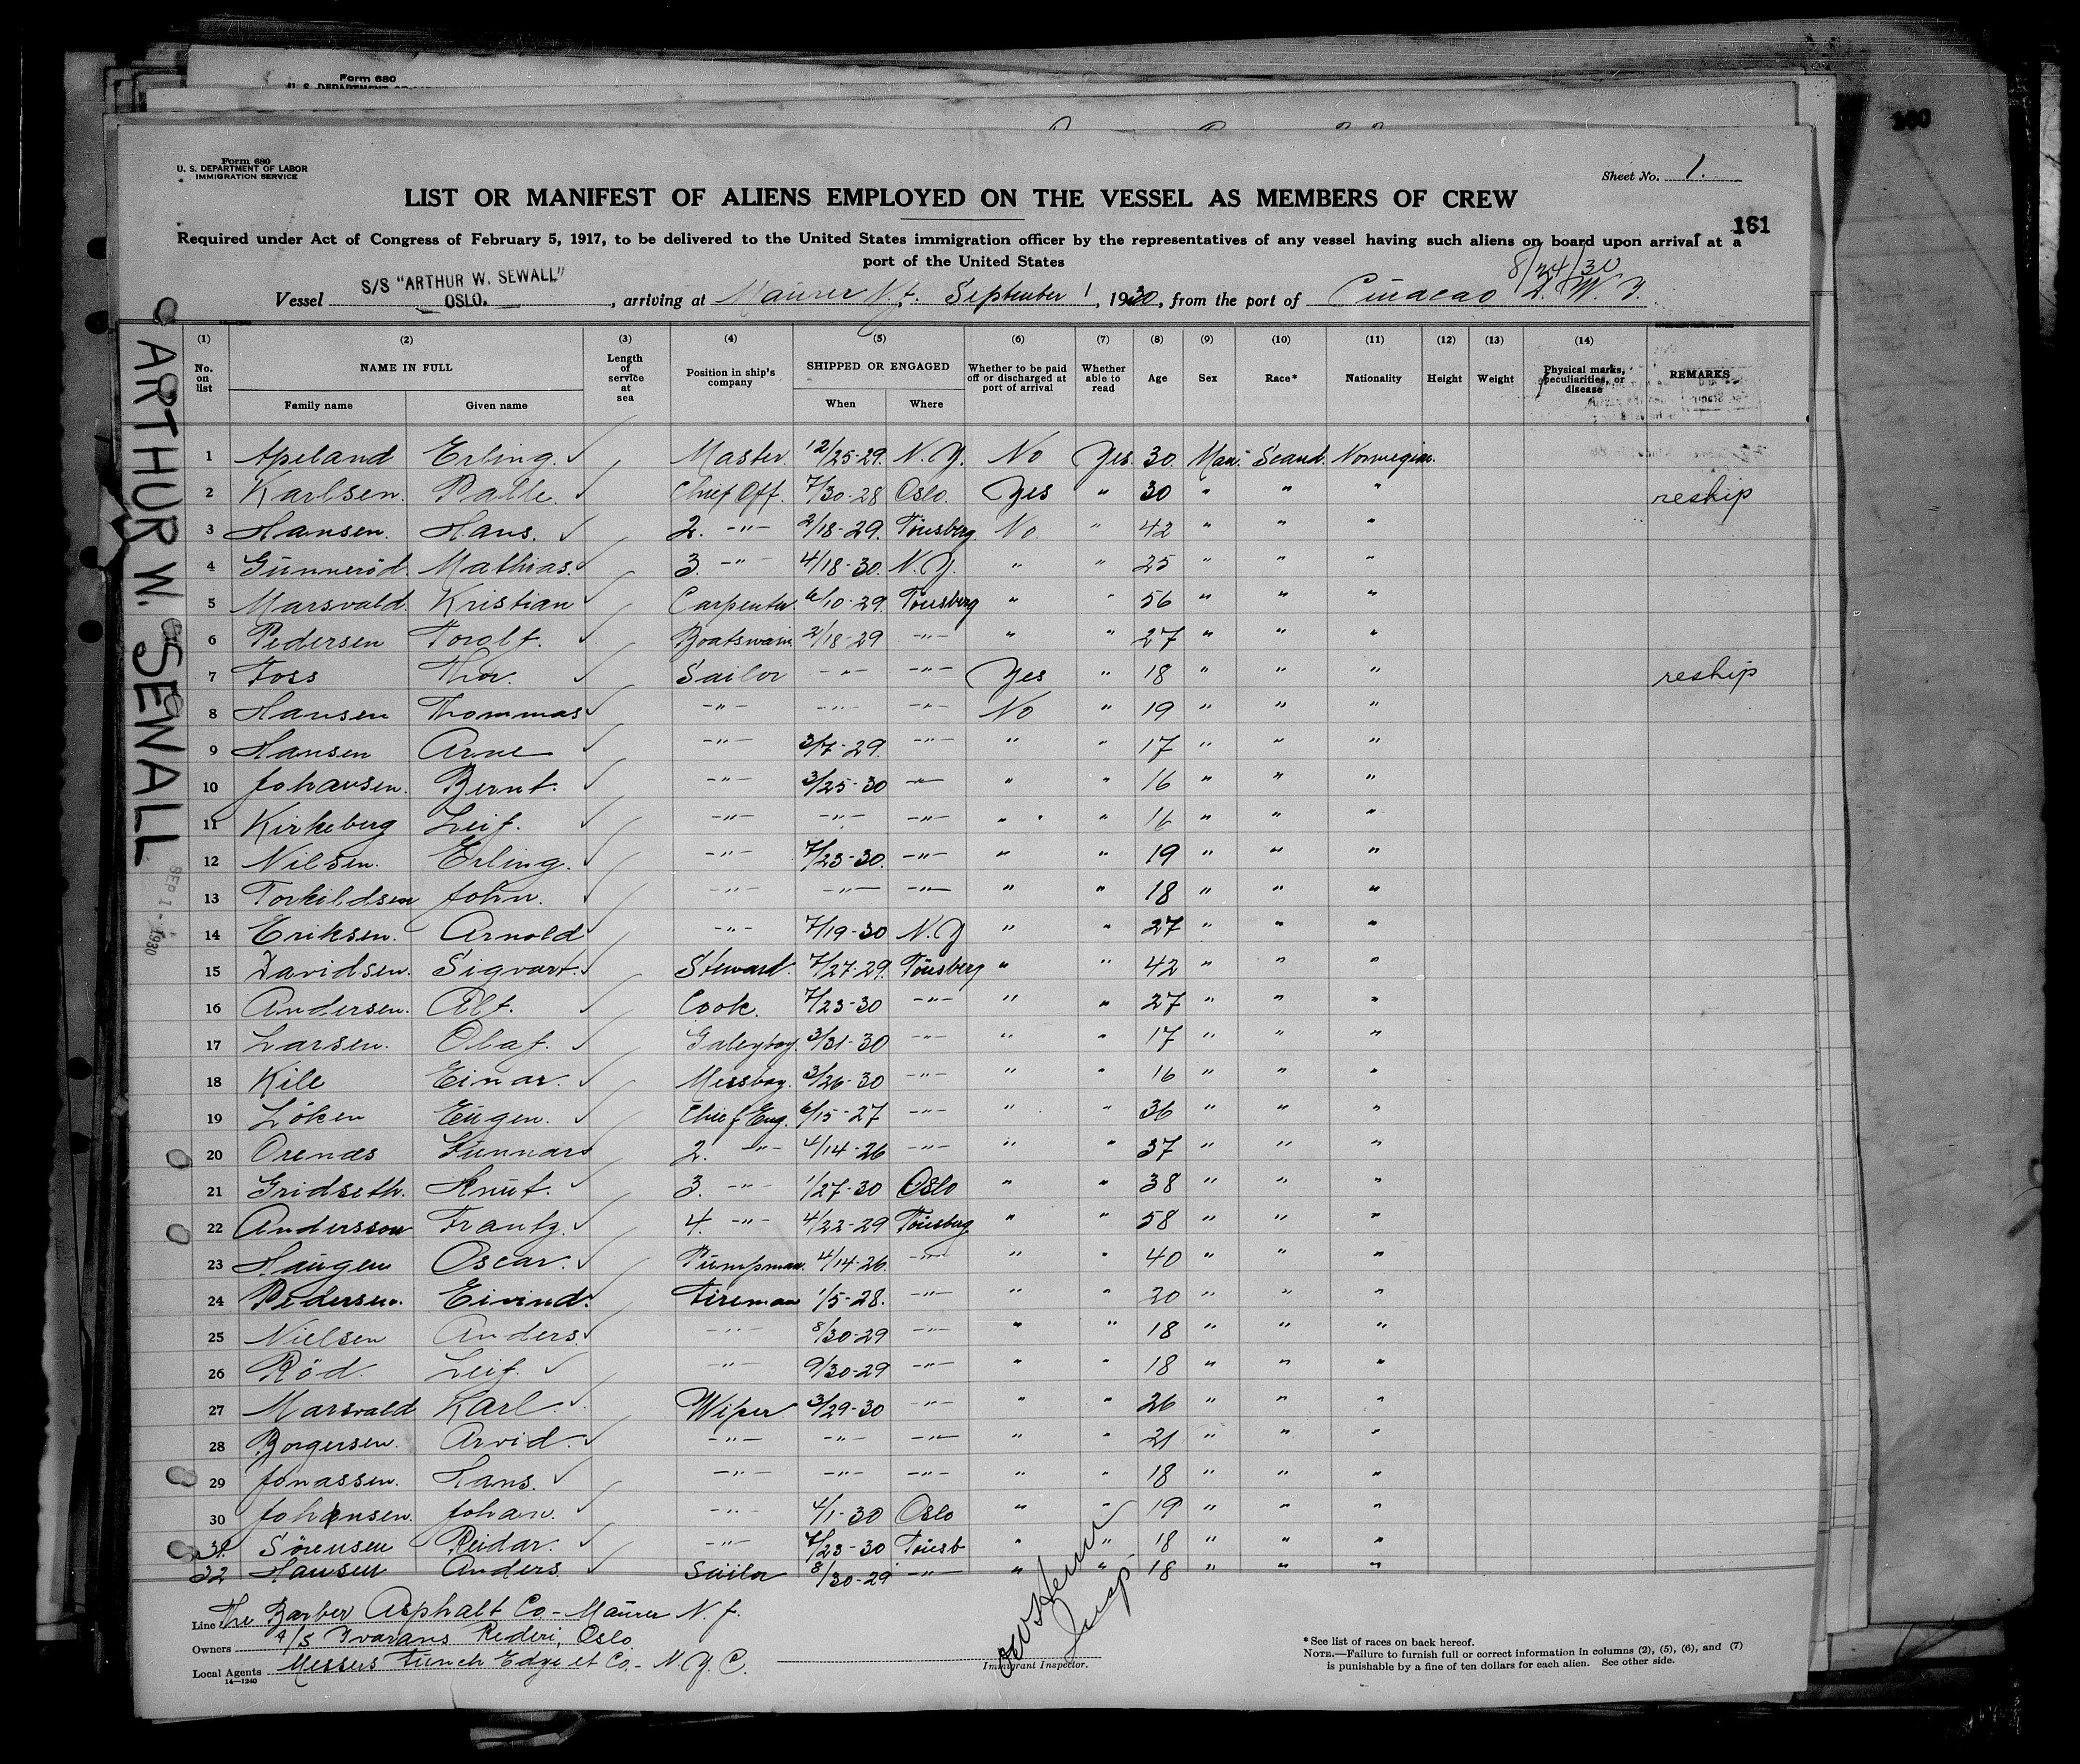 Form 680
U. S. DEPARTMENT OF
160
Form 680
U. S. DEPARTMENT OF LABOR
IMMIGRATION SERVICE
Sheet No. 1.
LIST OR MANIFEST OF ALIENS EMPLOYED ON THE VESSEL AS MEMBERS OF CREW
161
Required under Act of Congress of February 5, 1917, to be delivered to the United States immigration officer by the representatives of any vessel having such aliens on board upon arrival at a
port of the United States
8/24/30
Vessel S/S "ARTHUR W. SEWALL" OSLO. , arriving at Maurer N.J. September 1, 1930, from the port of Curacao D. W. I.
ARTHUR W. SEWALL
SEP 1 - 1930
(1) (2) (3) (4) (5) (6) (7) (8) (9) (10) (11) (12) (13) (14)
No. on list NAME IN FULL Family name Given name Length of service at sea Position in ship's company SHIPPED OR ENGAGED When Where Whether to be paid off or discharged at port of arrival Whether able to read Age Sex Race* Nationality Height Weight Physical marks, peculiarities, or disease REMARKS
1 Apeland Erling. ✓ Master. 12/25-29. N.Y. No Yes. 30. Man. Scand. Norwegian.
2 Karlsen. Palle. ✓ Chief Off. 7/30-28 Oslo. Yes " 30 " " " reship
3 Hansen. Hans. ✓ 2. -"- 2/18-29. Tönsberg. No. " 42 " " "
4 Gunneröd. Mathias. ✓ 3. -"- 4/18-30. N.Y. " " 25 " " "
5 Marsvald. Kristian ✓ Carpenter. 6/10-29. Tönsberg " " 56 " " "
6 Pedersen Toralf. ✓ Boatswain. 2/18-29 -"- " " 27 " " "
7 Foss Thor. ✓ Sailor -"- -"- Yes " 18 " " " reship
8 Hansen Thommas ✓ -"- -"- -"- No " 19 " " "
9 Hansen Arne ✓ -"- 3/7-29. -"- " " 17 " " "
10 Johansen. Bernt. ✓ -"- 3/25-30 -"- " " 16 " " "
11 Kirkeberg Leif. ✓ -"- -"- -"- " " 16 " " "
12 Nilsen. Erling. ✓ -"- 7/23-30. -"- " " 19 " " "
13 Torkildsen John. ✓ -"- -"- -"- " " 18 " " "
14 Eriksen. Arnold ✓ -"- 7/19-30 N.Y " " 27 " " "
15 Davidsen. Sigvart. ✓ Steward. 7/27-29. Tönsberg " " 42 " " "
16 Andersen. Alf. ✓ Cook. 7/23-30 -"- " " 27 " " "
17 Larsen. Olaf. ✓ Galeyboy. 3/31-30 -"- " " 17 " " "
18 Kile Einar. ✓ Messboy. 3/26-30 -"- " " 16 " " "
19 Löken Eugen. ✓ Chief Eng. 6/15-27 -"- " " 36 " " "
20 Orenæs Gunnar ✓ 2. -"- 4/14-26 -"- " " 37 " " "
21 Gridseth. Knut. ✓ 3. -"- 1/27-30 Oslo " " 38 " " "
22 Andersson Frantz. ✓ 4. -"- 4/22-29 Tönsberg " " 58 " " "
23 Haugen Oscar. ✓ Pumpman. 4/14-26. -"- " " 40 " " "
24 Pedersen. Eivind. ✓ Fireman 1/5-28. -"- " " 20 " " "
25 Nielsen Anders. ✓ -"- 8/30-29 -"- " " 18 " " "
26 Röd. Leif. ✓ -"- 9/30-29 -"- " " 18 " " "
27 Marsvald Karl ✓ Wiper 3/29-30 -"- " " 26 " " "
28 Borgersen. Arvid. ✓ -"- -"- -"- " " 21 " " "
29 Jonassen. Hans. ✓ -"- -"- -"- " " 18 " " "
30 Johansen. Johan. ✓ -"- 4/1-30 Oslo " " 19 " " "
31. Sörensen Reidar. ✓ -"- 7/23-30 Tönsb " " 18 " " "
32 Hansen Anders ✓ Sailor 8/30-29 -"- " " 18 " " "
Line The Barber Asphalt Co - Maurer N.J.
Owners A/S Ivarans Rederi, Oslo
Local Agents Messrs Funch Edye et Co. - N.Y.C.
14—1240
Insp.
Immigrant Inspector.
* See list of races on back hereof.
NOTE.—Failure to furnish full or correct information in columns (2), (5), (6), and (7)
is punishable by a fine of ten dollars for each alien. See other side.